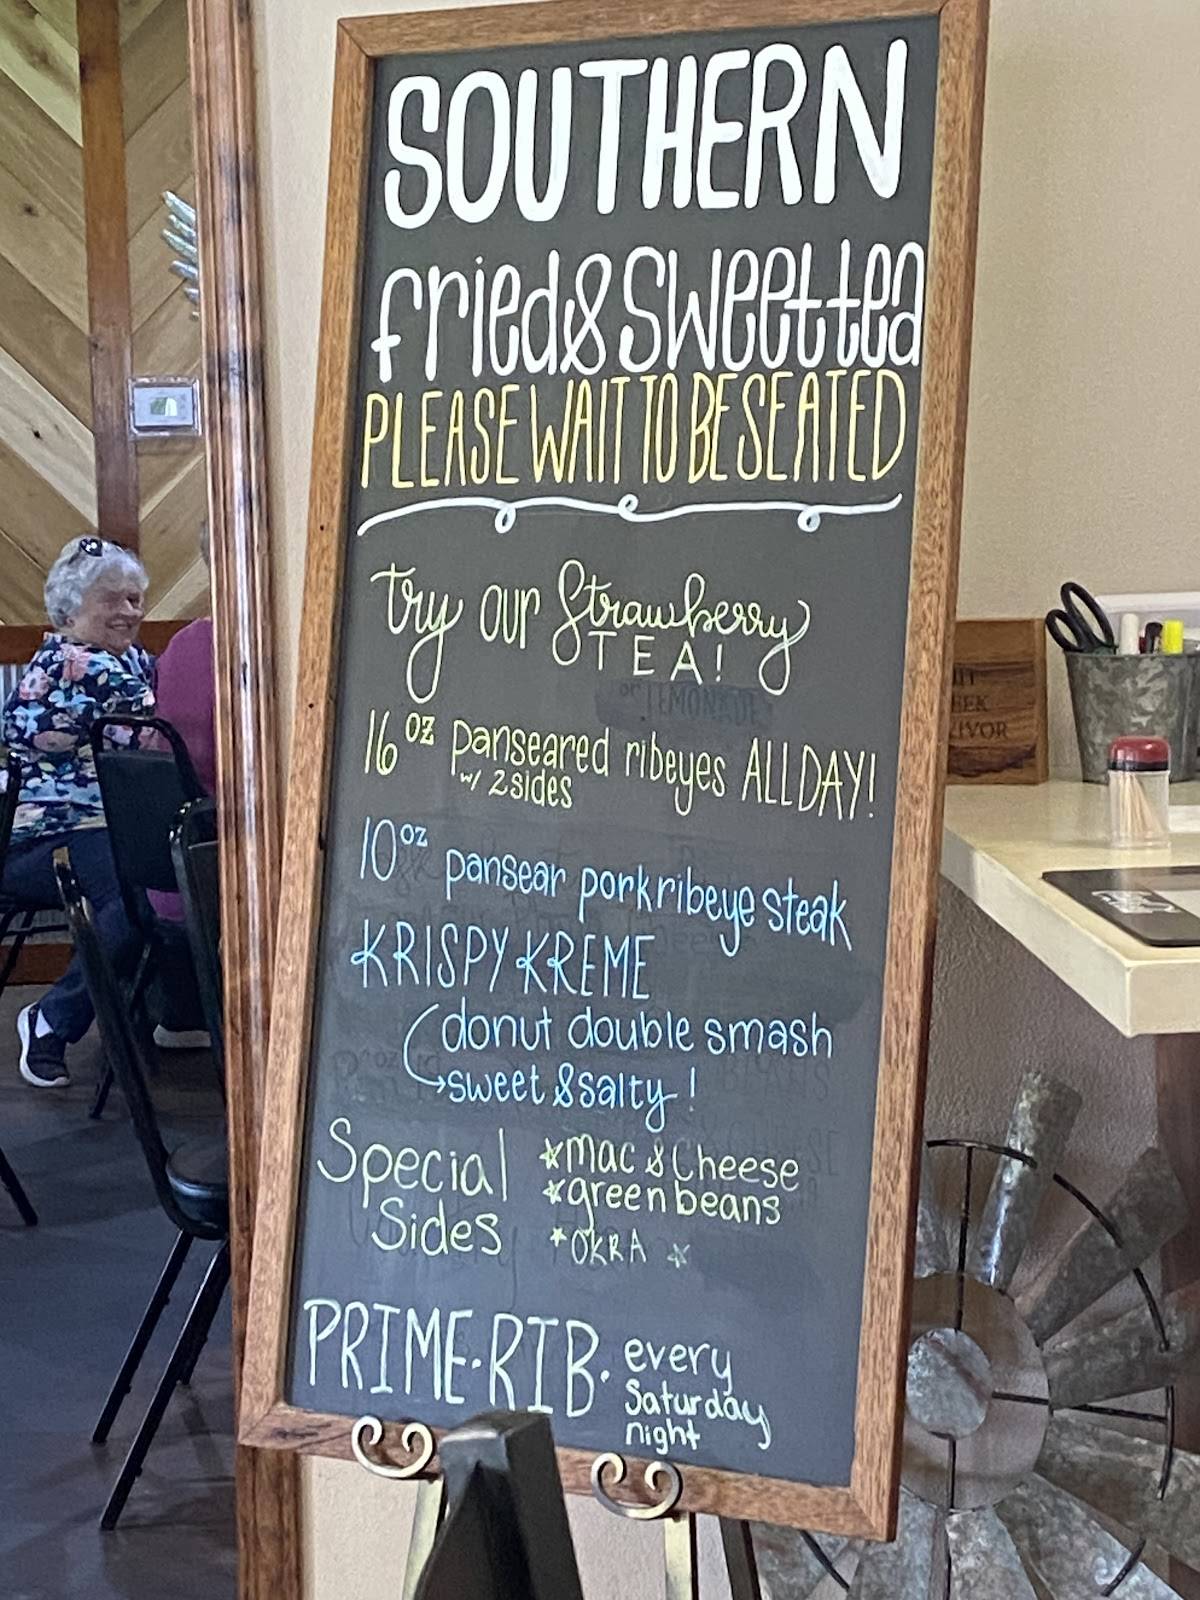 SOUTHERN
fried & sweet tea
PLEASE WAIT TO BE SEATED
try our Strawberry
TEA!
or LEMONADE
16 oz panseared ribeyes ALL DAY!
w/ 2 sides
10 oz pansear pork ribeye steak
KRISPY KREME
donut double smash
sweet & salty!
Special
Sides
mac & Cheese
green beans
OKRA
PRIME·RIB·
every
Saturday
night